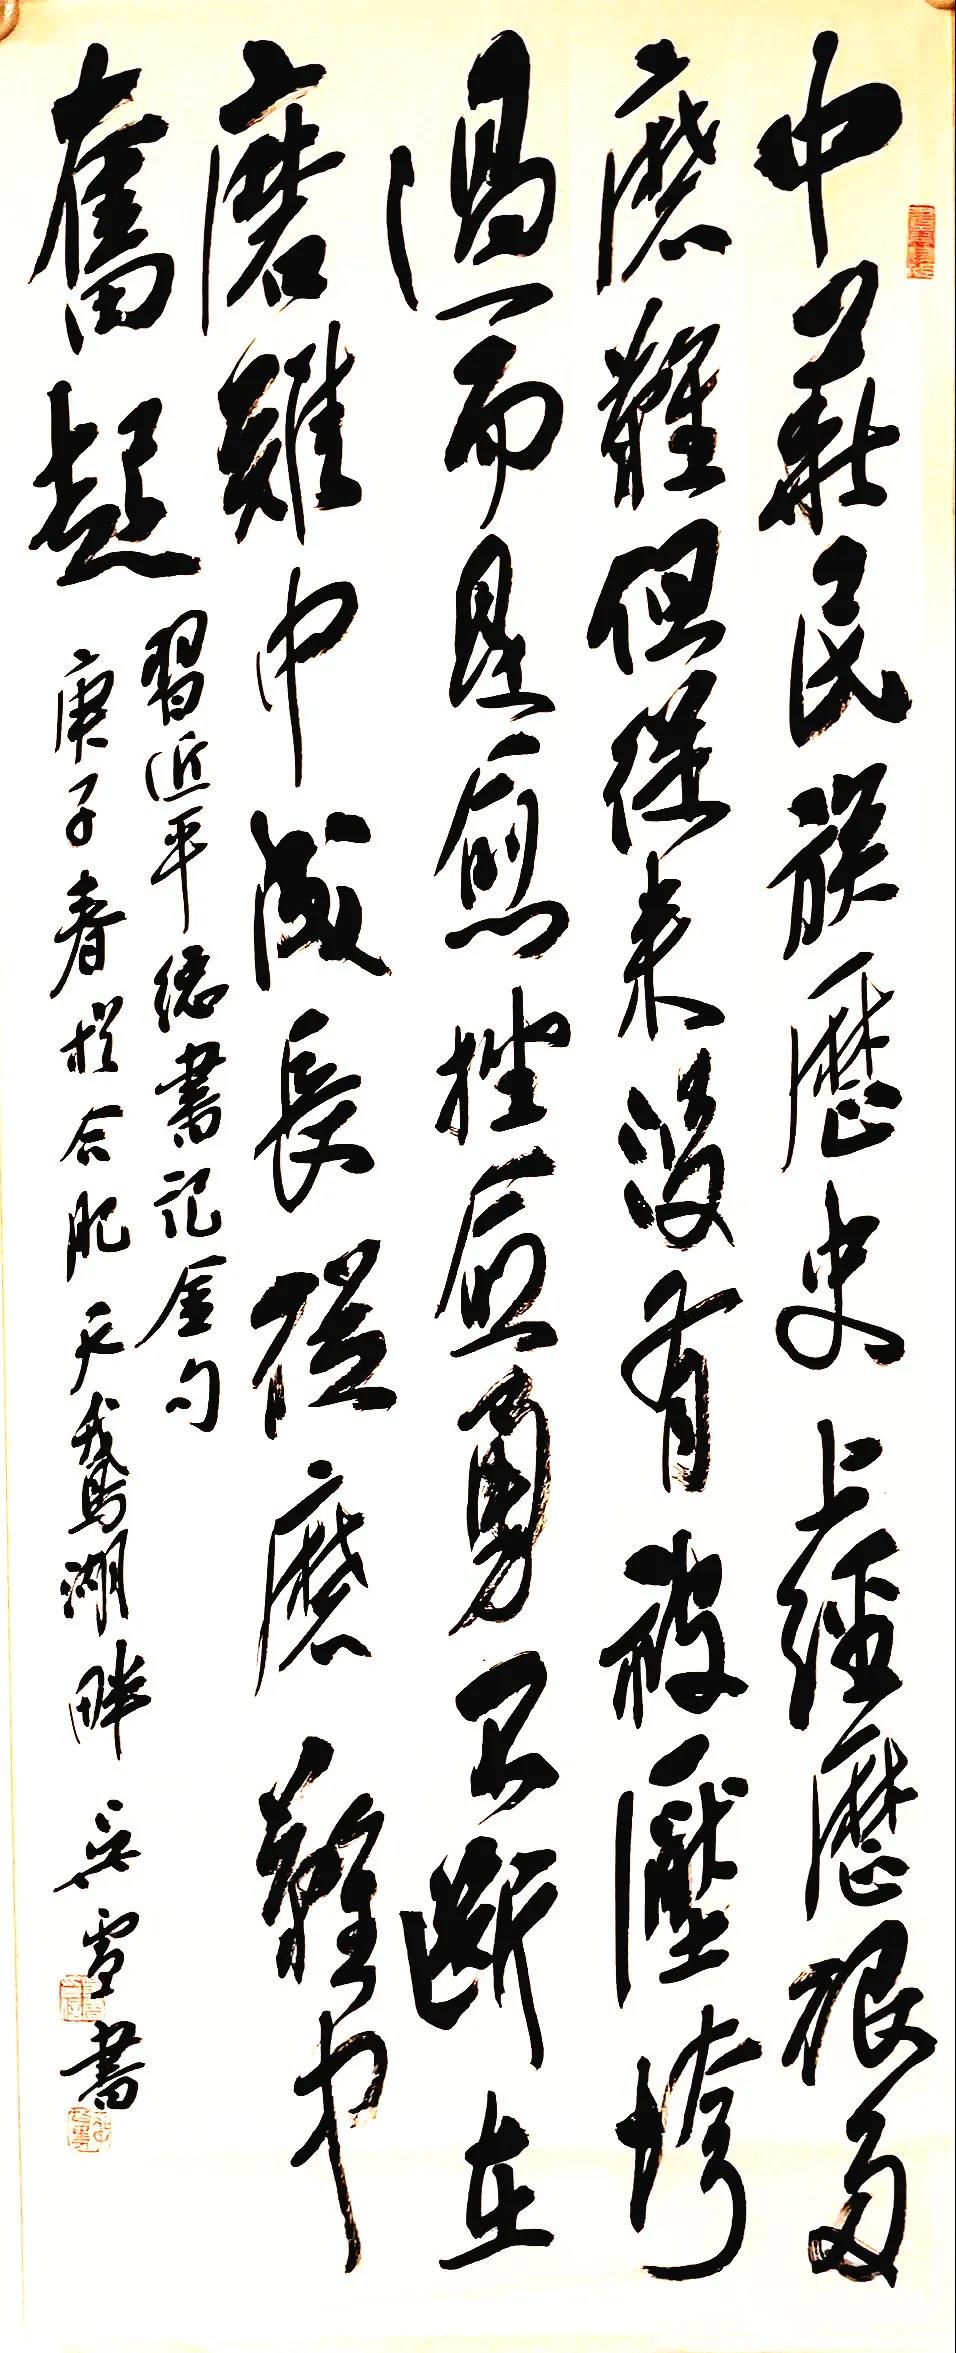 中華民族歷史上經歷很多
磨難但從來沒有被壓垮
過而是愈挫愈勇不斷在
磨難中成長從磨難中
奮起
習近平總書記金句
庚子春於合肥天鵝湖畔吳雪書